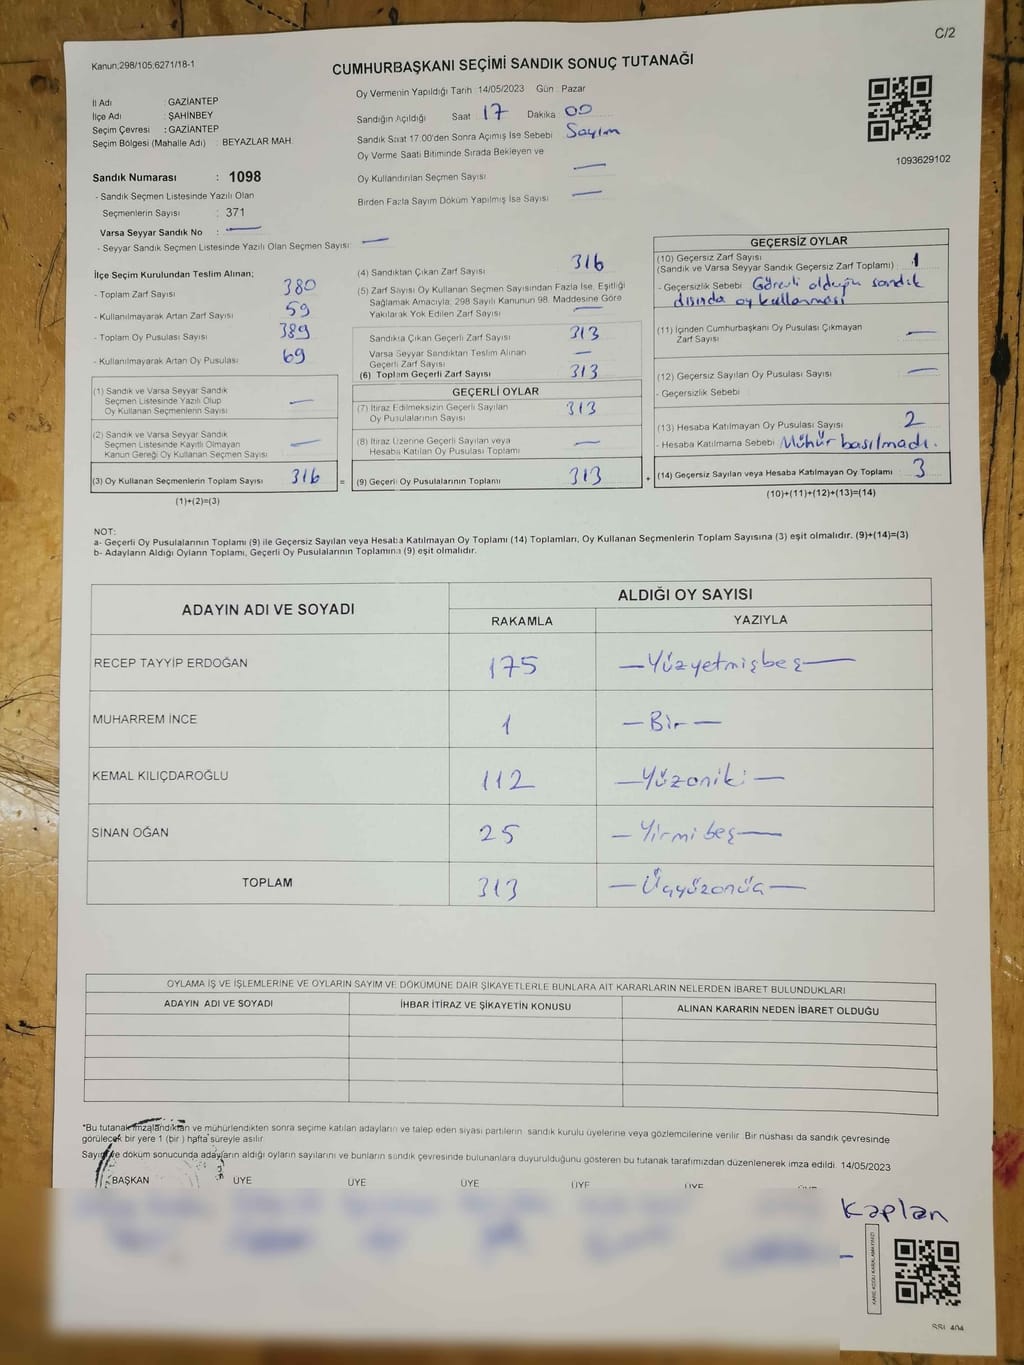 C/2
Kanun;298/105;6271/18-1
CUMHURBAŞKANI SEÇİMİ SANDIK SONUÇ TUTANAĞI
İl Adı : GAZİANTEP
İlçe Adı : ŞAHİNBEY
Seçim Çevresi : GAZİANTEP
Seçim Bölgesi (Mahalle Adı) : BEYAZLAR MAH.
Sandık Numarası : 1098
- Sandık Seçmen Listesinde Yazılı Olan
Seçmenlerin Sayısı : 371
Varsa Seyyar Sandık No : —
- Seyyar Sandık Seçmen Listesinde Yazılı Olan Seçmen Sayısı: —
Oy Vermenin Yapıldığı Tarih : 14/05/2023 Gün : Pazar
Sandığın Açıldığı Saat : 17 Dakika : 00
Sandık Saat 17:00'den Sonra Açılmış İse Sebebi Sayım
Oy Verme Saati Bitiminde Sırada Bekleyen ve
Oy Kullandırılan Seçmen Sayısı —
Birden Fazla Sayım Döküm Yapılmış İse Sayısı —
1093629102
İlçe Seçim Kurulundan Teslim Alınan;
- Toplam Zarf Sayısı 380
- Kullanılmayarak Artan Zarf Sayısı 59
- Toplam Oy Pusulası Sayısı 389
- Kullanılmayarak Artan Oy Pusulası 69
(1) Sandık ve Varsa Seyyar Sandık
Seçmen Listesinde Yazılı Olup
Oy Kullanan Seçmenlerin Sayısı —
(2) Sandık ve Varsa Seyyar Sandık
Seçmen Listesinde Kayıtlı Olmayan
Kanun Gereği Oy Kullanan Seçmen Sayısı —
(3) Oy Kullanan Seçmenlerin Toplam Sayısı 316
(1)+(2)=(3)
(4) Sandıktan Çıkan Zarf Sayısı 316
(5) Zarf Sayısı Oy Kullanan Seçmen Sayısından Fazla İse, Eşitliği
Sağlamak Amacıyla; 298 Sayılı Kanunun 98. Maddesine Göre
Yakılarak Yok Edilen Zarf Sayısı —
Sandıkta Çıkan Geçerli Zarf Sayısı 313
Varsa Seyyar Sandıktan Teslim Alınan
Geçerli Zarf Sayısı —
(6) Toplam Geçerli Zarf Sayısı 313
GEÇERLİ OYLAR
(7) İtiraz Edilmeksizin Geçerli Sayılan
Oy Pusulalarının Sayısı 313
(8) İtiraz Üzerine Geçerli Sayılan veya
Hesaba Katılan Oy Pusulası Toplamı —
= (9) Geçerli Oy Pusulalarının Toplamı 313 +
GEÇERSİZ OYLAR
(10) Geçersiz Zarf Sayısı
(Sandık ve Varsa Seyyar Sandık Geçersiz Zarf Toplamı) : 1
- Geçersizlik Sebebi Görevli olduğu sandık
dışında oy kullanması
(11) İçinden Cumhurbaşkanı Oy Pusulası Çıkmayan
Zarf Sayısı —
(12) Geçersiz Sayılan Oy Pusulası Sayısı —
- Geçersizlik Sebebi
(13) Hesaba Katılmayan Oy Pusulası Sayısı 2
- Hesaba Katılmama Sebebi Mühür basılmadı.
(14) Geçersiz Sayılan veya Hesaba Katılmayan Oy Toplamı 3
(10)+(11)+(12)+(13)=(14)
NOT:
a- Geçerli Oy Pusulalarının Toplamı (9) ile Geçersiz Sayılan veya Hesaba Katılmayan Oy Toplamı (14) Toplamları, Oy Kullanan Seçmenlerin Toplam Sayısına (3) eşit olmalıdır. (9)+(14)=(3)
b- Adayların Aldığı Oyların Toplamı, Geçerli Oy Pusulalarının Toplamına (9) eşit olmalıdır.
ADAYIN ADI VE SOYADI ALDIĞI OY SAYISI
RAKAMLA YAZIYLA
RECEP TAYYİP ERDOĞAN 175 —Yüzyetmişbeş—
MUHARREM İNCE 1 —Bir—
KEMAL KILIÇDAROĞLU 112 —Yüzoniki—
SİNAN OĞAN 25 —Yirmibeş—
TOPLAM 313 —Üçyüzonüç—
OYLAMA İŞ VE İŞLEMLERİNE VE OYLARIN SAYIM VE DÖKÜMÜNE DAİR ŞİKAYETLERLE BUNLARA AİT KARARLARIN NELERDEN İBARET BULUNDUKLARI
ADAYIN ADI VE SOYADI İHBAR İTİRAZ VE ŞİKAYETİN KONUSU ALINAN KARARIN NEDEN İBARET OLDUĞU
*Bu tutanak imzalandıktan ve mühürlendikten sonra seçime katılan adayların ve talep eden siyasi partilerin sandık kurulu üyelerine veya gözlemcilerine verilir. Bir nüshası da sandık çevresinde
görülecek bir yere 1 (bir) hafta süreyle asılır.
Sayım ve döküm sonucunda adayların aldığı oyların sayılarını ve bunların sandık çevresinde bulunanlara duyurulduğunu gösteren bu tutanak tarafımızdan düzenlenerek imza edildi. 14/05/2023
BAŞKAN ÜYE ÜYE ÜYE ÜYE ÜYE
Kaplan